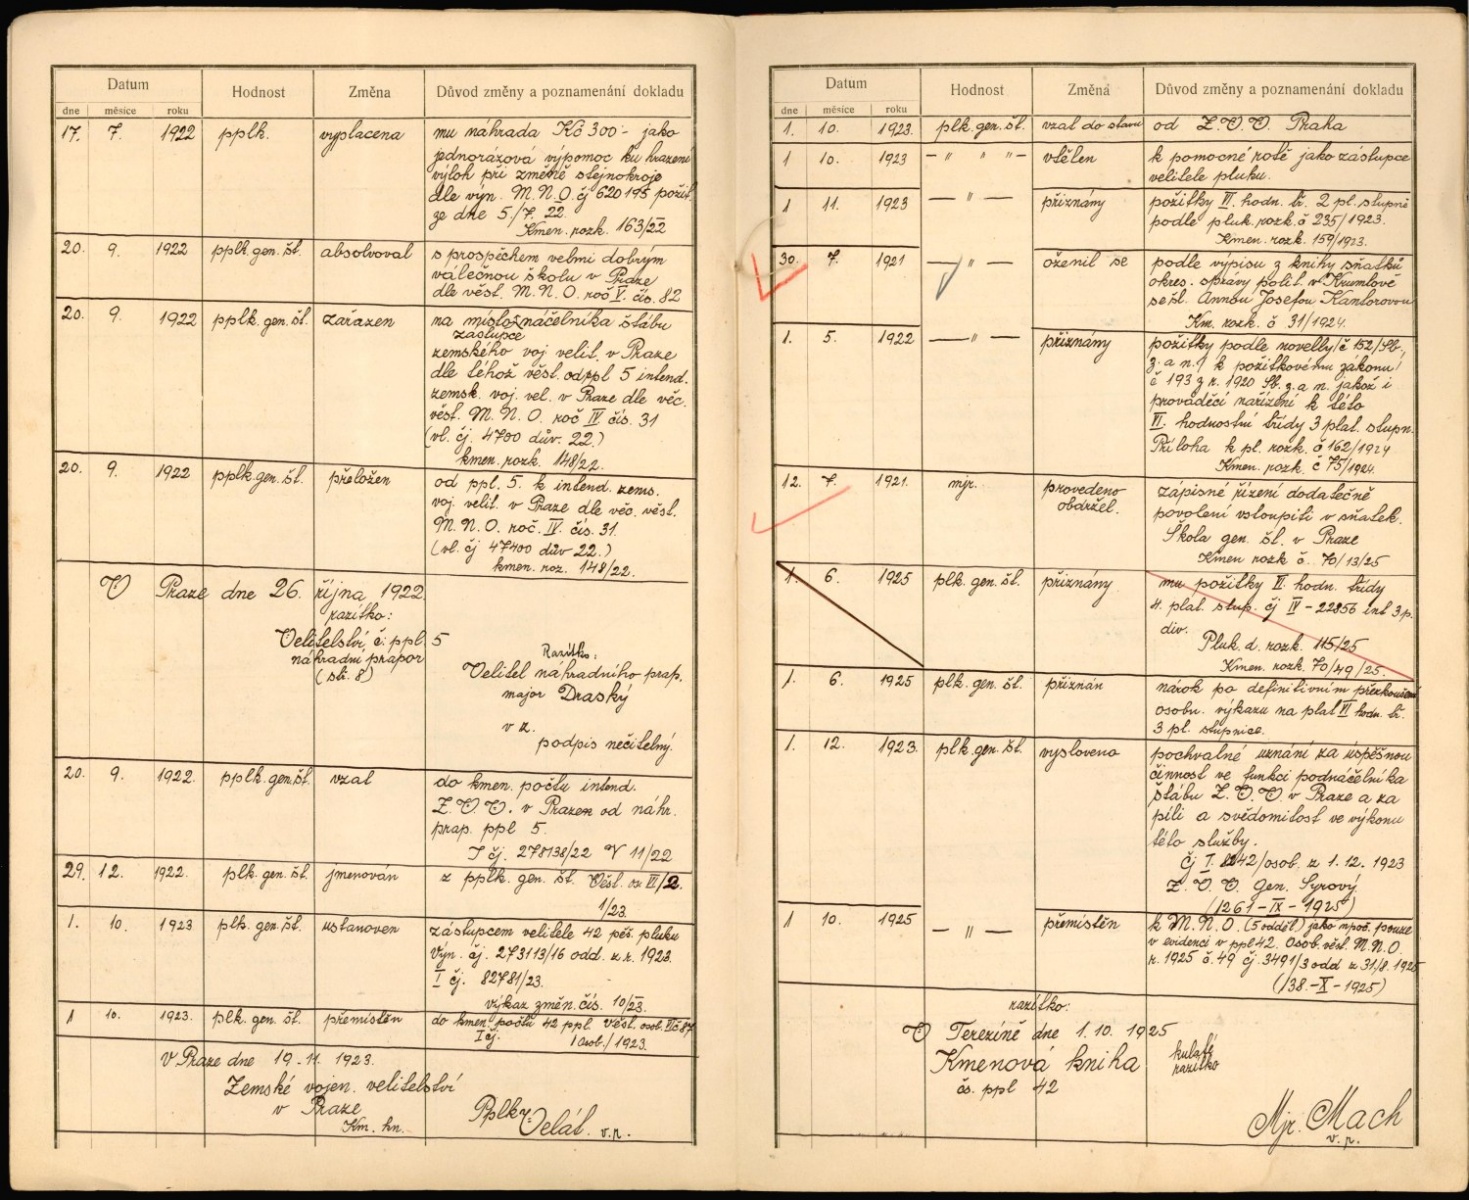 Datum Hodnost Změna Důvod změny a poznamenání dokladu
dne měsíce roku
17. 7. 1922 pplk. vyplacena mu náhrada Kč 300- jako
jednorázová výpomoc ku hrazení
výloh při změně stejnokroje
dle výn. M.N.O. čj 620195 požit.
ze dne 5./7. 22.
Kmen. rozk. 163/22
20. 9. 1922 pplk. gen. št. absolvoval s prospěchem velmi dobrým
válečnou školu v Praze
dle věst. M.N.O. roč V. čís. 82
20. 9. 1922 pplk. gen. št. zařazen na místo náčelníka štábu
zástupce
zemského voj velit. v Praze
dle téhož věst. od ppl 5 intend.
zemsk. voj. vel. v Praze dle věc.
věst. M.N.O. roč IV čís. 31
(vl. čj. 4700 dův. 22.)
kmen. rozk. 148/22.
20. 9. 1922 pplk. gen. št. přeložen od ppl. 5. k intend. zems.
voj. velit. v Praze dle věc. věst.
M.N.O. roč. IV. čís. 31.
(vl. čj 47400 dův 22.)
kmen. roz. 148/22.
V Praze dne 26. října 1922
razítko:
Velitelství č. ppl. 5
náhradní prapor
Razítko:
Velitel náhradního prap.
major Draský
v z.
podpis nečitelný.
20. 9. 1922. pplk. gen. št. vzat do kmen. počtu intend.
Z.V.V. v Praze od náhr.
prap. ppl 5.
I čj. 278138/22 V 11/22
29. 12. 1922. plk. gen. št. jmenován z pplk. gen. št. Věst. os III/2.
1/23.
1. 10. 1923 plk. gen. št. ustanoven zástupcem velitele 42 pěš. pluku
Výn. čj. 273113/16 odd. z r. 1923.
I čj. 82781/23.
výkaz změn. čís. 10/23.
1 10. 1923. plk. gen. št. přemístěn do kmen. počtu 42 ppl Věst. osob. VI č 87
I čj. 1 osob./1923.
V Praze dne 19.11. 1923.
Zemské vojen. velitelství
v Praze
Km. kn.
Pplk. Velát. v.r.
Datum Hodnost Změna Důvod změny a poznamenání dokladu
dne měsíce roku
1. 10. 1923. plk. gen. št. vzat do stavu od Z.V.V. Praha
1 10. 1923 – " " "– vtělen k pomocné rotě jako zástupce
velitele pluku.
1 11. 1923 — " — přiznány požitky VI. hodn. tř. 2 pl. stupně
podle pluk. rozk. č 235/1923.
Kmen. rozk. 159/1923.
30. 7. 1921 — " — oženil se podle výpisu z knihy sňatků
okres. správy polit. v Krumlově
se sl. Annou Josefou Kantorovou
Km. rozk. č 31/1924.
1. 5. 1922 — " — přiznány požitky podle novelly/č 152/Sb.
z. a n./ k požitkovému zákonu
č 193 z r. 1920 Sb. z. a n. jakož i
prováděcí nařízení k této
VI. hodnostní třídy 3 plat. stupn.
Příloha k pl. rozk. č 162/1924
Kmen. rozk. č 75/1924.
12. 7. 1921. mjr. provedeno zápisné řízení dodatečně
obdržel. povolení vstoupiti v sňatek.
Škola gen. št. v Praze
Kmen rozk č. 70/13/25
1. 6. 1925 plk. gen. št. přiznány mu požitky VI. hodn. třídy
4. plat. stup. čj IV – 22856 int 3 p.
div.
Pluk. d. rozk. 115/25
Kmen. rozk. 70/49/25.
1. 6. 1925 plk. gen. št. přiznán nárok po definitivním přezkoušení
osobn. výkazu na plat VI hodn. tř.
3 pl. stupnice.
1. 12. 1923. plk. gen. št. vysloveno pochvalné uznání za úspěšnou
činnost ve funkci podnáčelníka
štábu Z.V.V. v Praze a za
píli a svědomitost ve výkonu
této služby.
čj I. 8242/osob. z 1. 12. 1923
Z.V.V. Gen. Syrový
(1261–IX–1925)
1 10. 1925 — " — přemístěn k M.N.O. (5 odděl.) jako pouze
v evidenci v ppl 42. Osob. věst. M.N.O
r. 1925 č. 49 čj. 3491/3 odd z 31/8. 1925
(138.–X–1925)
razítko:
V Terezíně dne 1. 10. 1925
Kmenová kniha
čs. ppl 42
kulaté
razítko
Mjr. Mach
v.r.